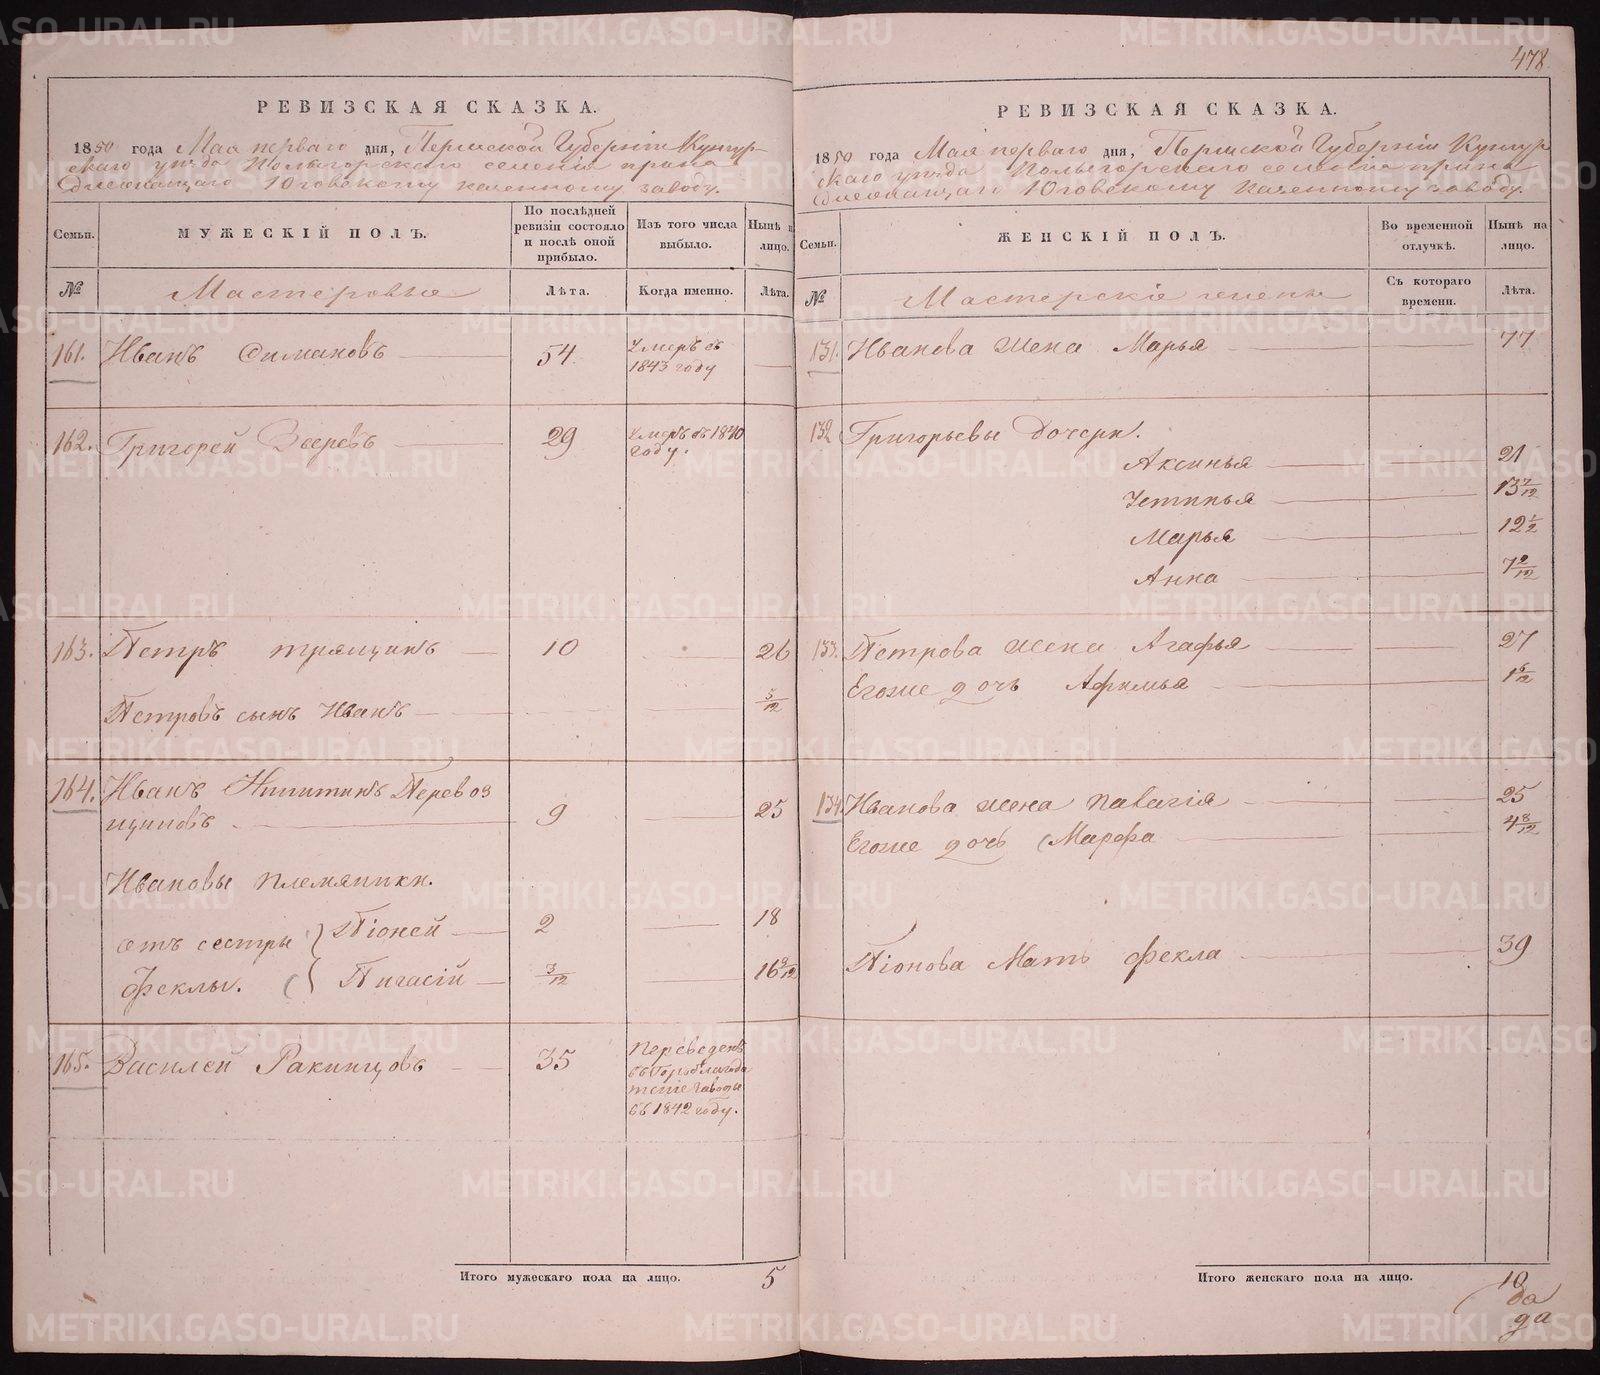 478
РЕВИЗСКАЯ СКАЗКА.
1850 года Мая перваго дня, Пермской Губерніи Кунгур-
скаго уезда
Юговскому казенному заводу.
Семьи. МУЖЕСКІЙ ПОЛЪ. По послѣдней ревизіи состояло и послѣ оной прибыло. Изъ того числа выбыло. Нынѣ на лицо.
№ Мастеровые Лѣта. Когда именно. Лѣта.
161. Иванъ Симановъ 54 Умеръ въ 1843 году
162. Григорей Зверевъ 29 Умеръ въ 1840 году.
163. Петръ Трящинъ 10 26
Петровъ сынъ Иванъ 5/12
164. Иванъ Никитинъ Перевоз
щиковъ 9 25
Ивановы племянники.
отъ сестры Піоней 2 18
Феклы. Пигасій 3/12 16 3/12
165. Василей Ракинцовъ 35 Переведенъ
въ Гороблагода
тскіе заводы
въ 1842 году.
Итого мужескаго пола на лицо. 5
РЕВИЗСКАЯ СКАЗКА.
1850 года Мая перваго дня, Пермской Губерніи Кунгур
скаго уезда
Юговскому казенному заводу.
Семьи. ЖЕНСКІЙ ПОЛЪ. Во временной отлучкѣ. Нынѣ на лицо.
№ Мастерскіе жены Съ котораго времени. Лѣта.
131. Иванова жена Марья 77
132 Григорьевы дочери.
Аксинья 21
Устинья 13 7/12
Марья 12 1/2
Анна 7 2/12
133. Петрова жена Агафья 27
Егоже дочь Афимья 1 6/12
134 Иванова жена Палагія 25
Егоже дочь Марфа 4 8/12
Піонова Мать Фекла 39
Итого женскаго пола на лицо. 10